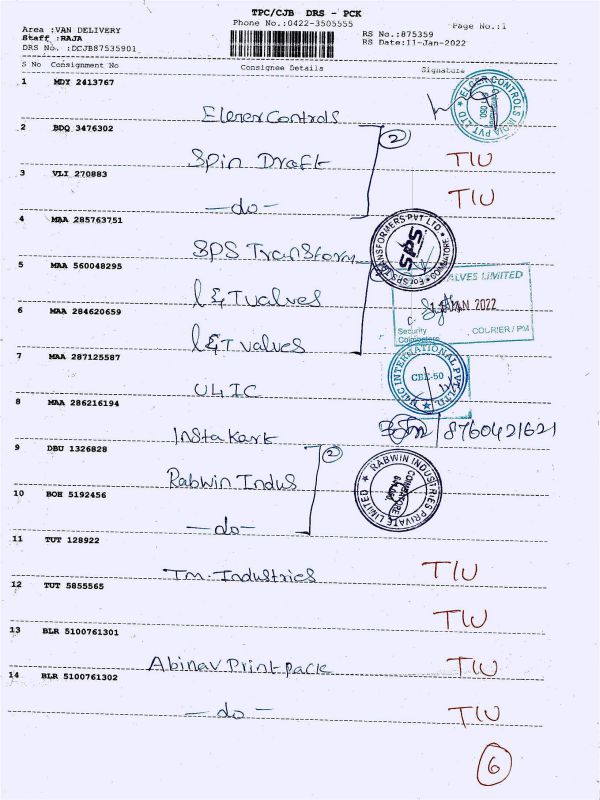 TPC/CJB DRS - PCK
Phone No.:0422-3505555
Page No.:1
Area :VAN DELIVERY
Staff :RAJA
DRS No. :DCJB87535901
RS No.:875359
RS Date:11-Jan-2022
S No Consignment No Consignee Details Signature
1 MDY 2413767
Elgar Controls
ELGER CONTROLS INDIA PVT LTD
2 BDQ 3476302
2
Spin Draft TIU
3 VLI 270883
-do- TIU
4 MAA 285763751
SPS Transform
For SPS TRANSFORMERS PVT LTD COIMBATORE
SPS
5 MAA 560048295
L&T valves
VALVES LIMITED
JAN 2022
Security COURIER / PM
Coimbatore
6 MAA 284620659
L&T valves
7 MAA 287125587
ULIC
INTERNATIONAL PVT. LTD.
CBE-50
8 MAA 286216194
Instakart 8760421621
9 DBU 1326828
2
Rabwin Indus
RABWIN INDUSTRIES PRIVATE LIMITED
COIMBATORE
10 BOH 5192456
-do-
11 TUT 128922
Tm. Industries TIU
12 TUT 5855565
TIU
13 BLR 5100761301
Abinav Print pack TIU
14 BLR 5100761302
-do- TIU
6